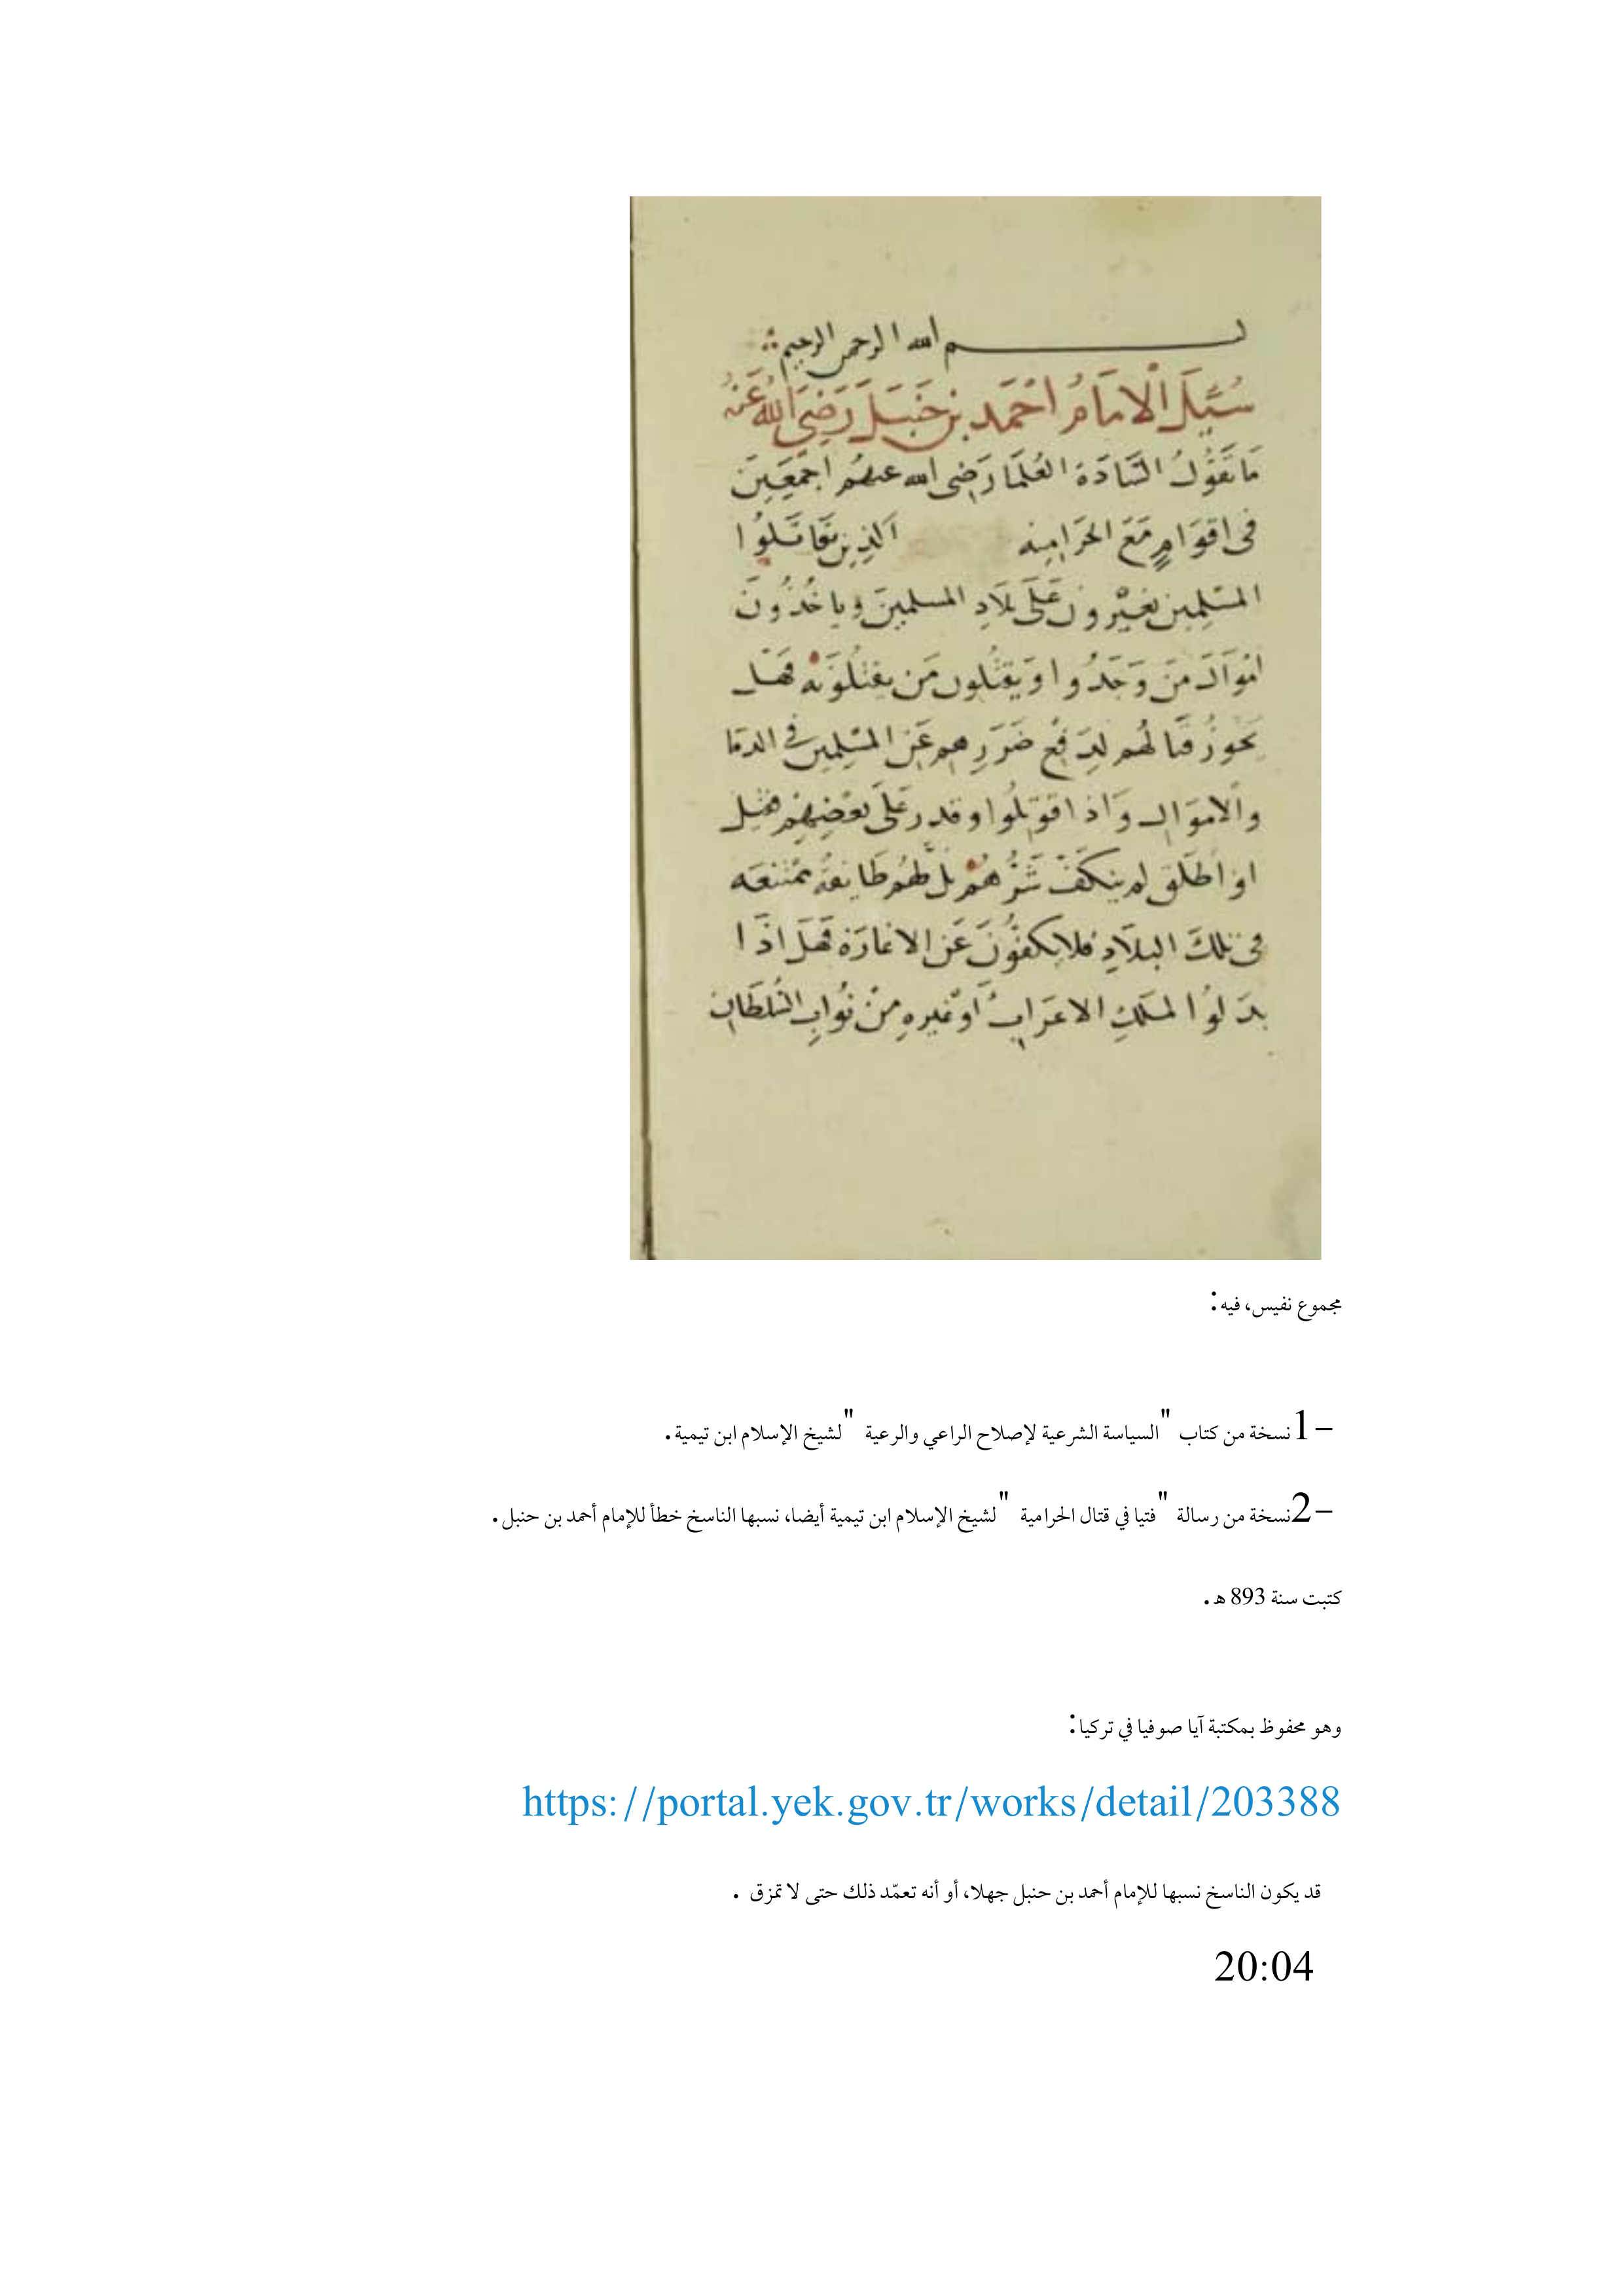 بسم الله الرحمن الرحيم
سُئِلَ الْامَامُ احْمَد بن حَنبَل رَضِيَ اللهُ عَنْهُ
مَا تَقُولُ السَّادَة العُلَمَا رَضِى الله عنهُم اجمَعِينَ
فى اقوَامٍ مَعَ الحَرَاميه الذِين يقَاتلُوا
المسْلِمِين يغيْرون عَلَى بلَادِ المسلمِينَ وياخُذُونَ
اموَالَ مَنْ وَجَدُوا وَيقتُلون مَن يقتُلُونَهُ فهَل
يَجُوزُ قتالهُم لِدَفْعِ ضَرَرِهِم عَنِ المسْلِمِين فى الدمَا
والاموَال وَاذا قوتِلُوا وقدر عَلَى بعْضِهِمْ فقتل
او اطلَق لم ينكفّ شَرُّهُم بل لهُم طَايفة ممتنعه
فى تلكَ البلَادِ فلا يكفُّونَ عَن الاغارَة فهَل اذَا
بذلوُا لملكِ الاعرَابُ اوْ غيرِهِ منْ نُوابِ السُلطَان
مجموع نفيس، فيه:
1– نسخة من كتاب "السياسة الشرعية لإصلاح الراعي والرعية" لشيخ الإسلام ابن تيمية.
2– نسخة من رسالة "فتيا في قتال الحرامية" لشيخ الإسلام ابن تيمية أيضا، نسبها الناسخ خطأ للإمام أحمد بن حنبل.
كتبت سنة 893 هـ.
وهو محفوظ بمكتبة آيا صوفيا في تركيا:
https://portal.yek.gov.tr/works/detail/203388
قد يكون الناسخ نسبها للإمام أحمد بن حنبل جهلا، أو أنه تعمّد ذلك حتى لا تمزق .
20:04